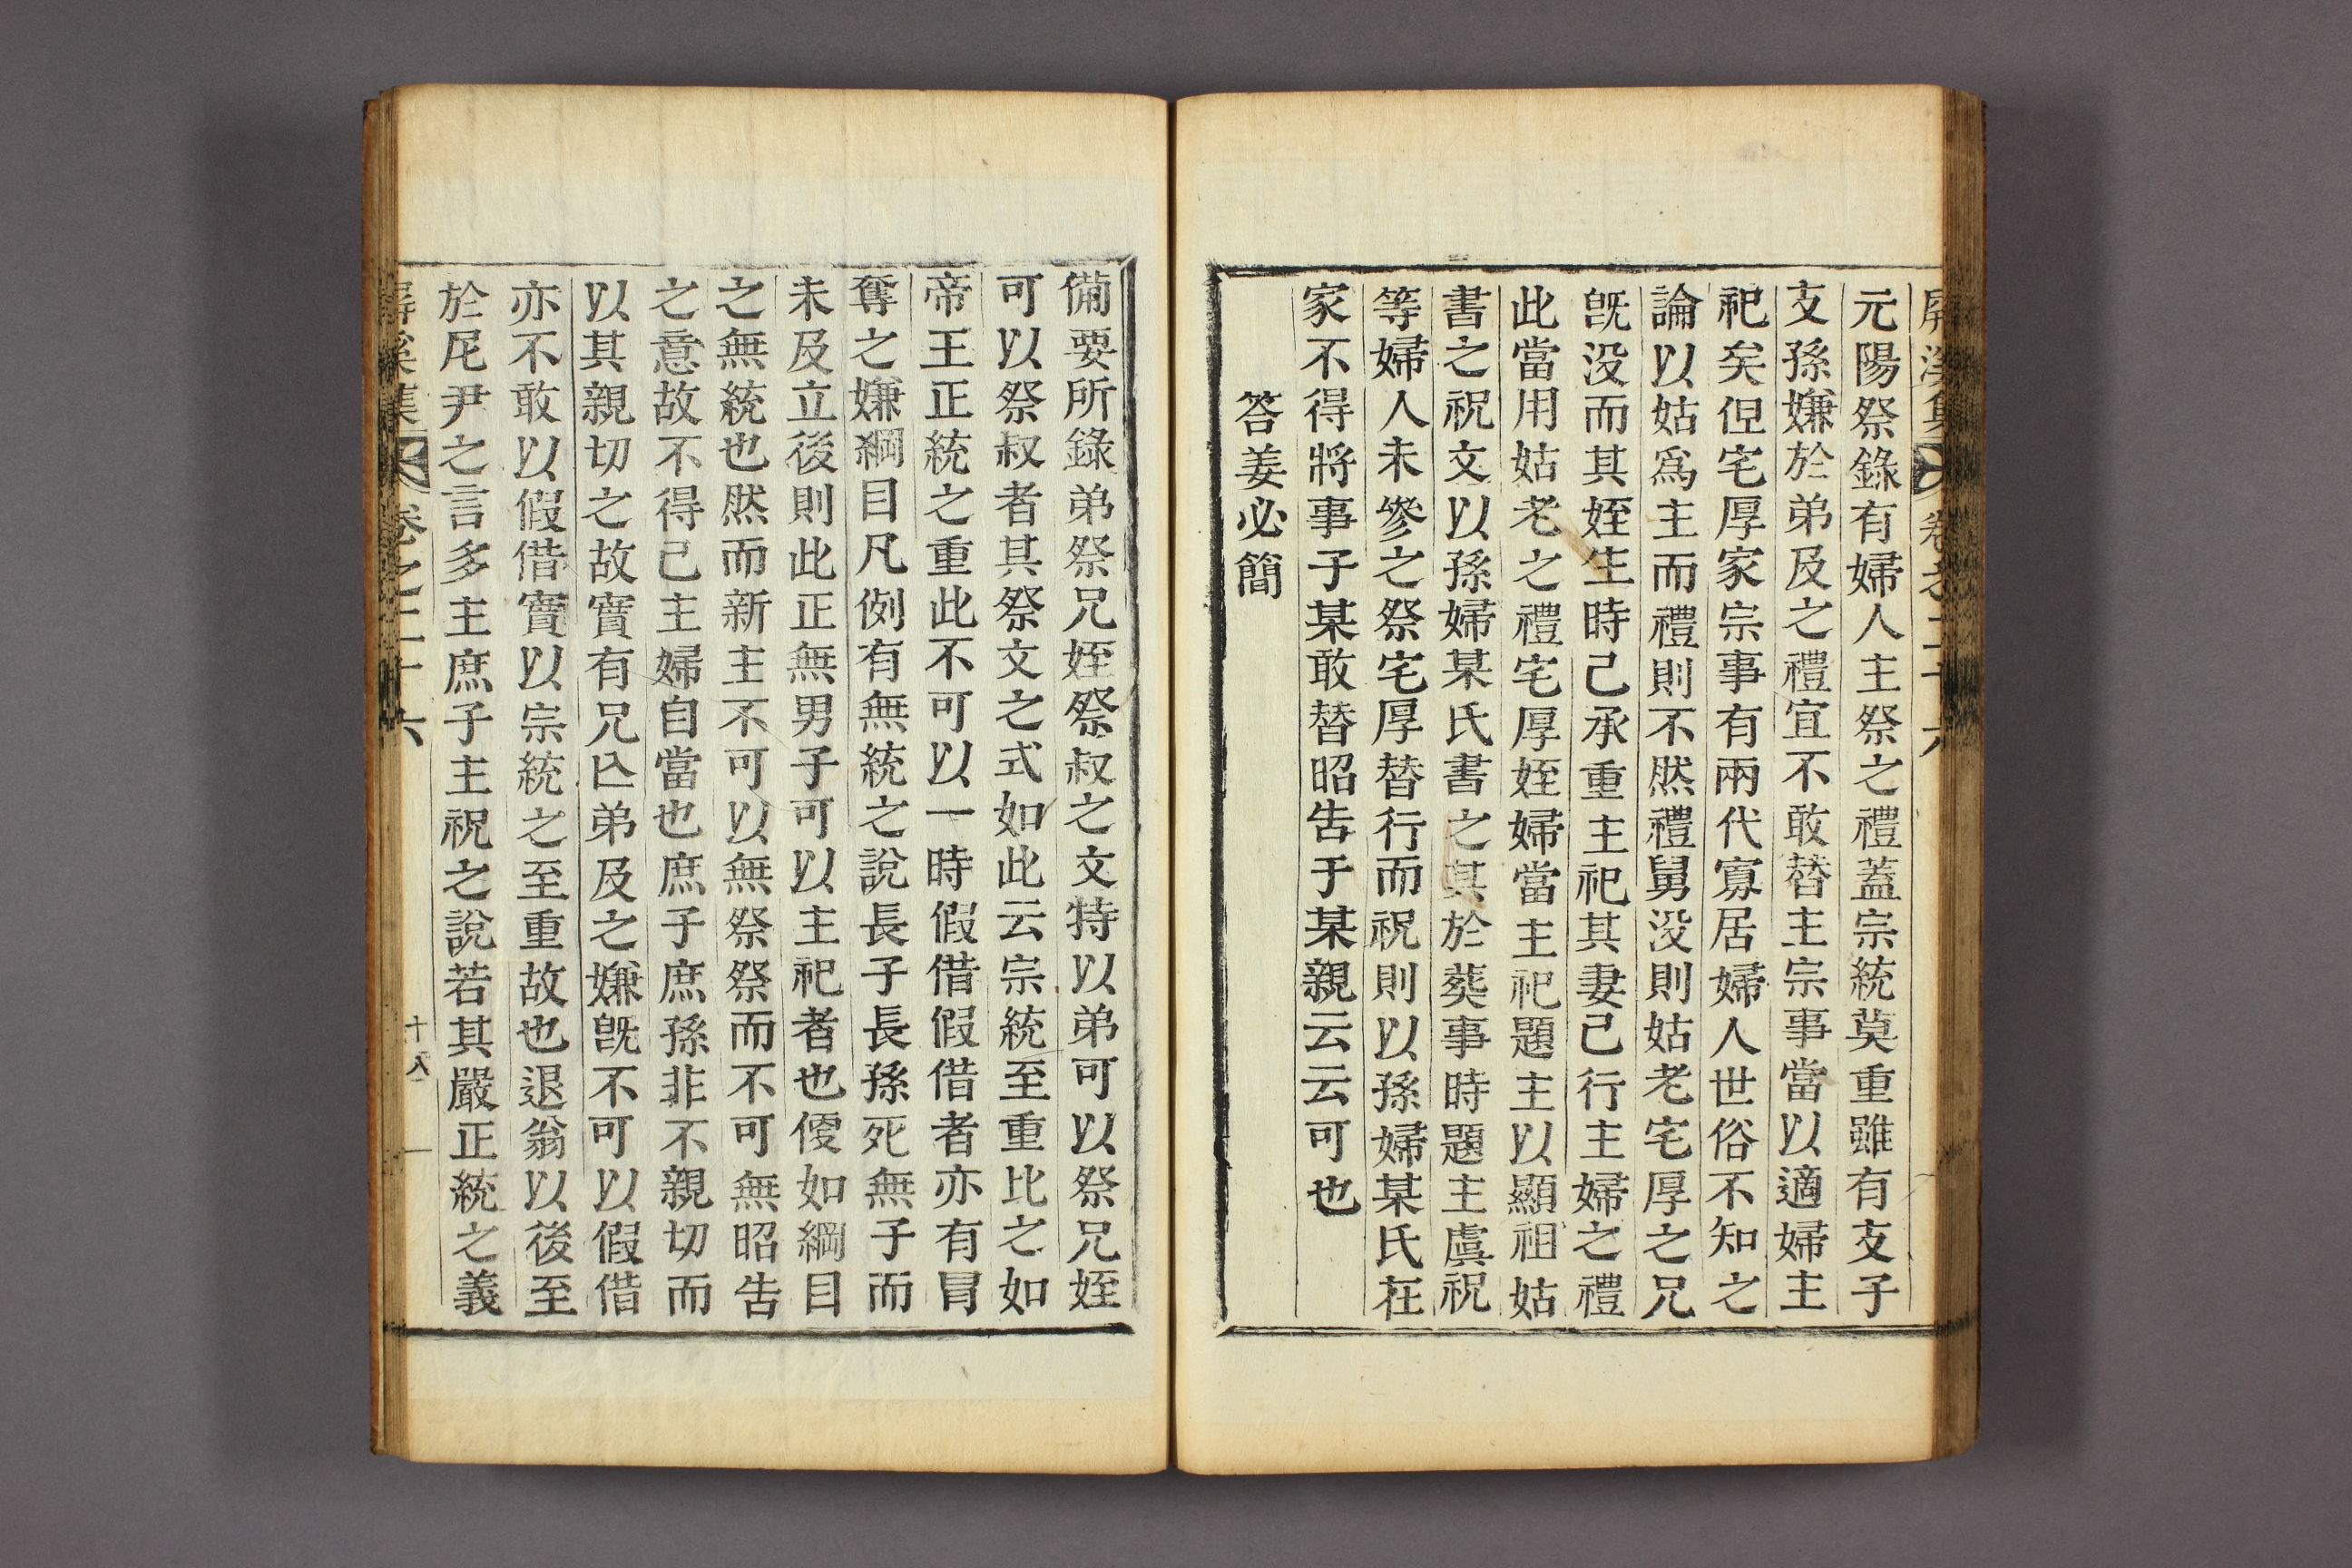 屛溪集 卷之二十六
元陽祭錄有婦人主祭之禮蓋宗統莫重雖有支子
支孫嫌於弟及之禮宜不敢替主宗事當以適婦主
祀矣但宅厚家宗事有兩代寡居婦人世俗不知之
論以姑爲主而禮則不然禮舅没則姑老宅厚之兄
旣没而其姪生時已承重主祀其妻已行主婦之禮
此當用姑老之禮宅厚姪婦當主祀題主以顯祖姑
書之祝文以孫婦某氏書之其於葬事時題主虞祝
等婦人未參之祭宅厚替行而祝則以孫婦某氏在
家不得將事子某敢替昭告于某親云云可也
答姜必簡
備要所錄弟祭兄姪祭叔之文特以弟可以祭兄姪
可以祭叔者其祭文之式如此云宗統至重比之如
帝王正統之重此不可以一時假借假借者亦有冒
奪之嫌綱目凡例有無統之說長子長孫死無子而
未及立後則此正無男子可以主祀者也便如綱目
之無統也然而新主不可以無祭祭而不可無昭告
之意故不得已主婦自當也庶子庶孫非不親切而
以其親切之故實有兄亾弟及之嫌旣不可以假借
亦不敢以假借實以宗統之至重故也退翁以後至
於尼尹之言多主庶子主祝之說若其嚴正統之義
屛溪集 卷之二十六 十八